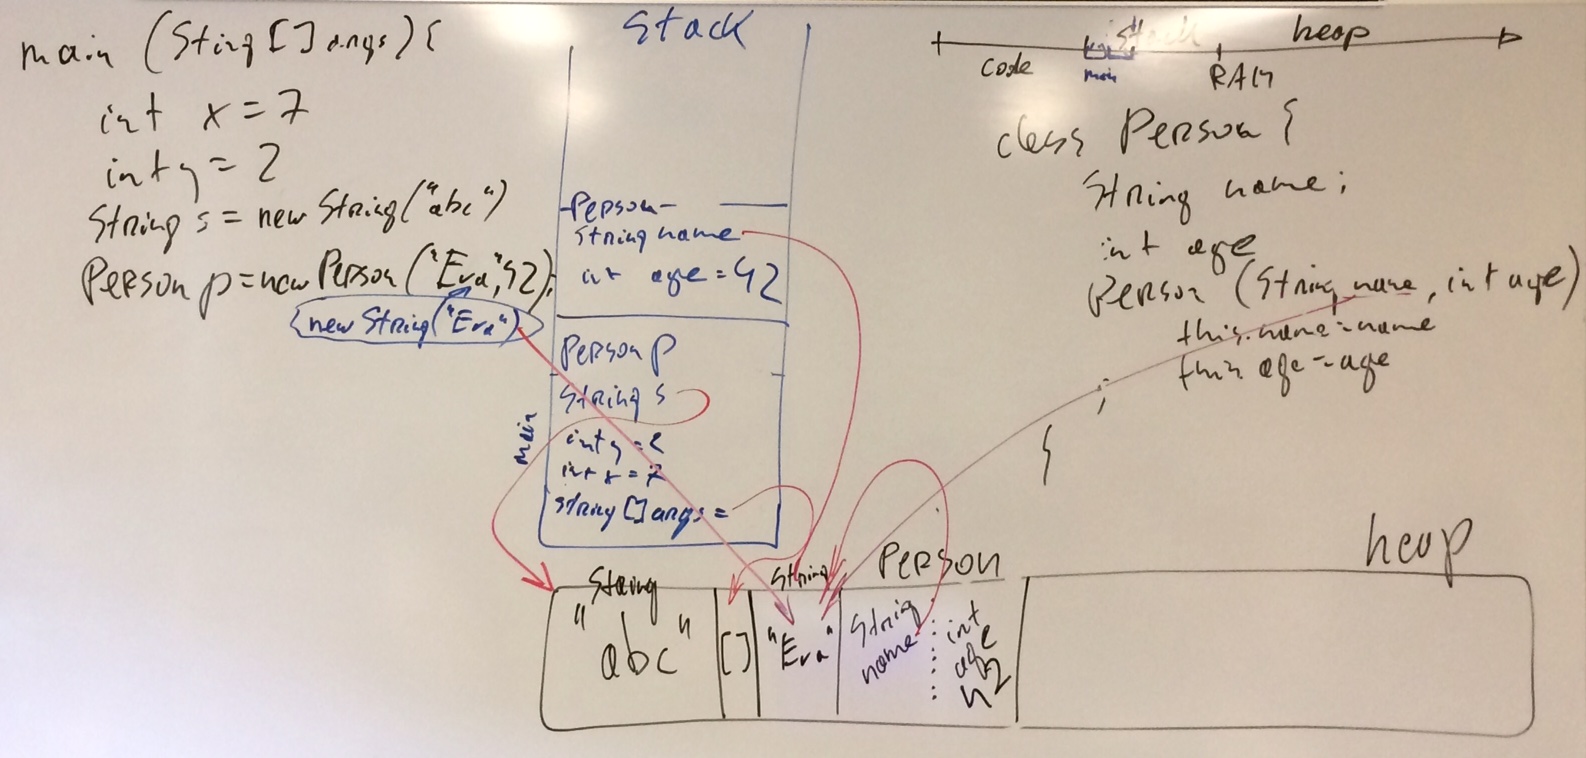 main (String [] args) {
int x = 7
int y = 2
String s = new String("abc")
Person p = new Person("Eva", 42);
new String("Eva")
Stack
Person
String name
int age = 42
Person p
String s
int y = 2
int x = 7
String [] args =
main
Stack
heap
code
main
RAM
class Person {
String name;
int age
Person (String name, int age)
this.name = name
this age = age
;
}
heap
String
"abc"
[]
String
"Eva"
Person
String name
int age 42